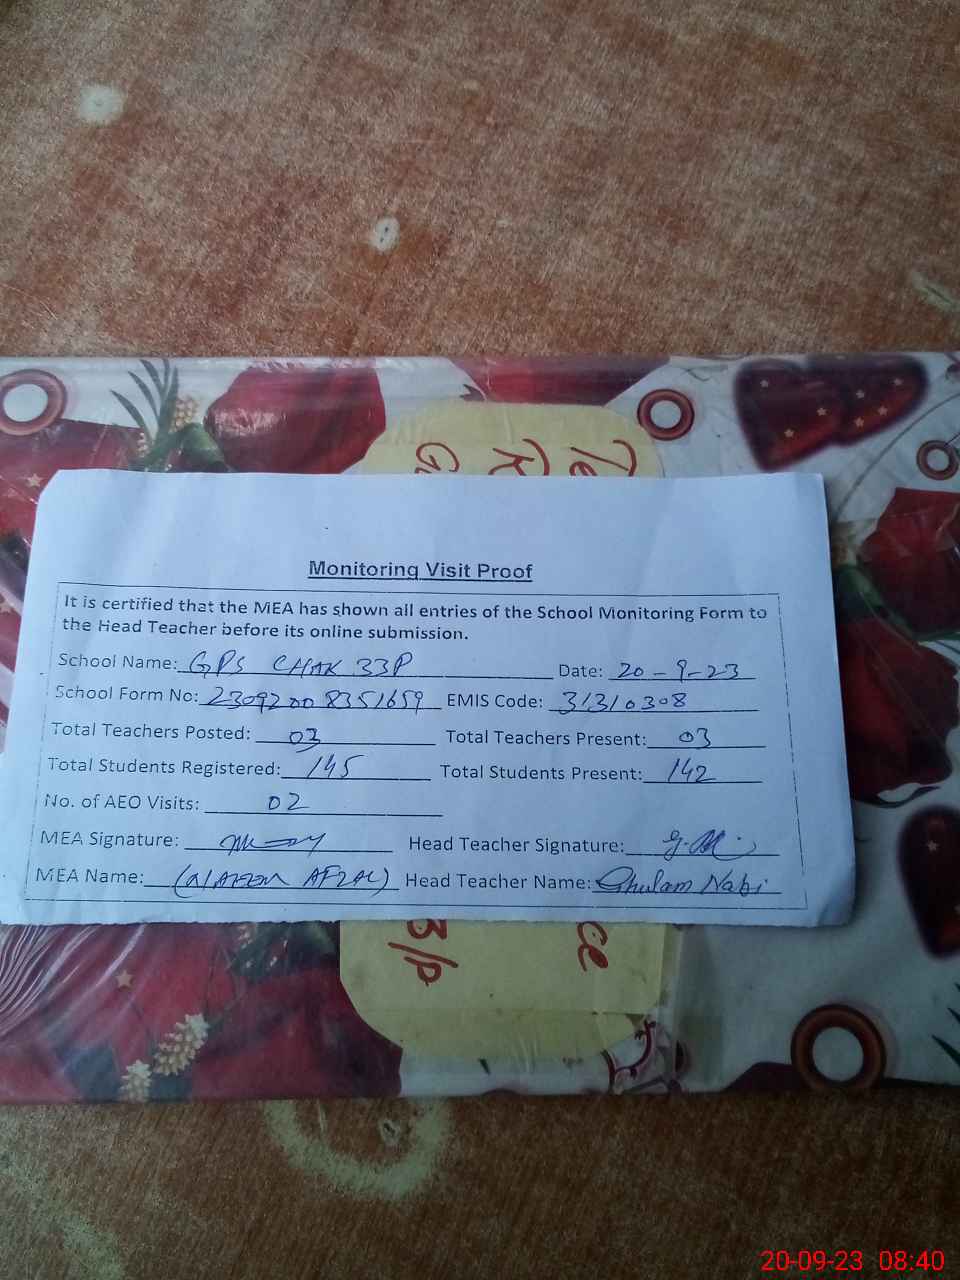 Te
K
G
Monitoring Visit Proof
It is certified that the MEA has shown all entries of the School Monitoring Form to
the Head Teacher before its online submission.
School Name: GPS CHAK 33P Date: 20-9-23
School Form No: 23092008351659 EMIS Code: 31310308
Total Teachers Posted: 03 Total Teachers Present: 03
Total Students Registered: 145 Total Students Present: 142
No. of AEO Visits: 02
MEA Signature: Head Teacher Signature:
MEA Name: (NAEEM AFZAL) Head Teacher Name: Ghulam Nabi
ce
3/p
20-09-23 08:40